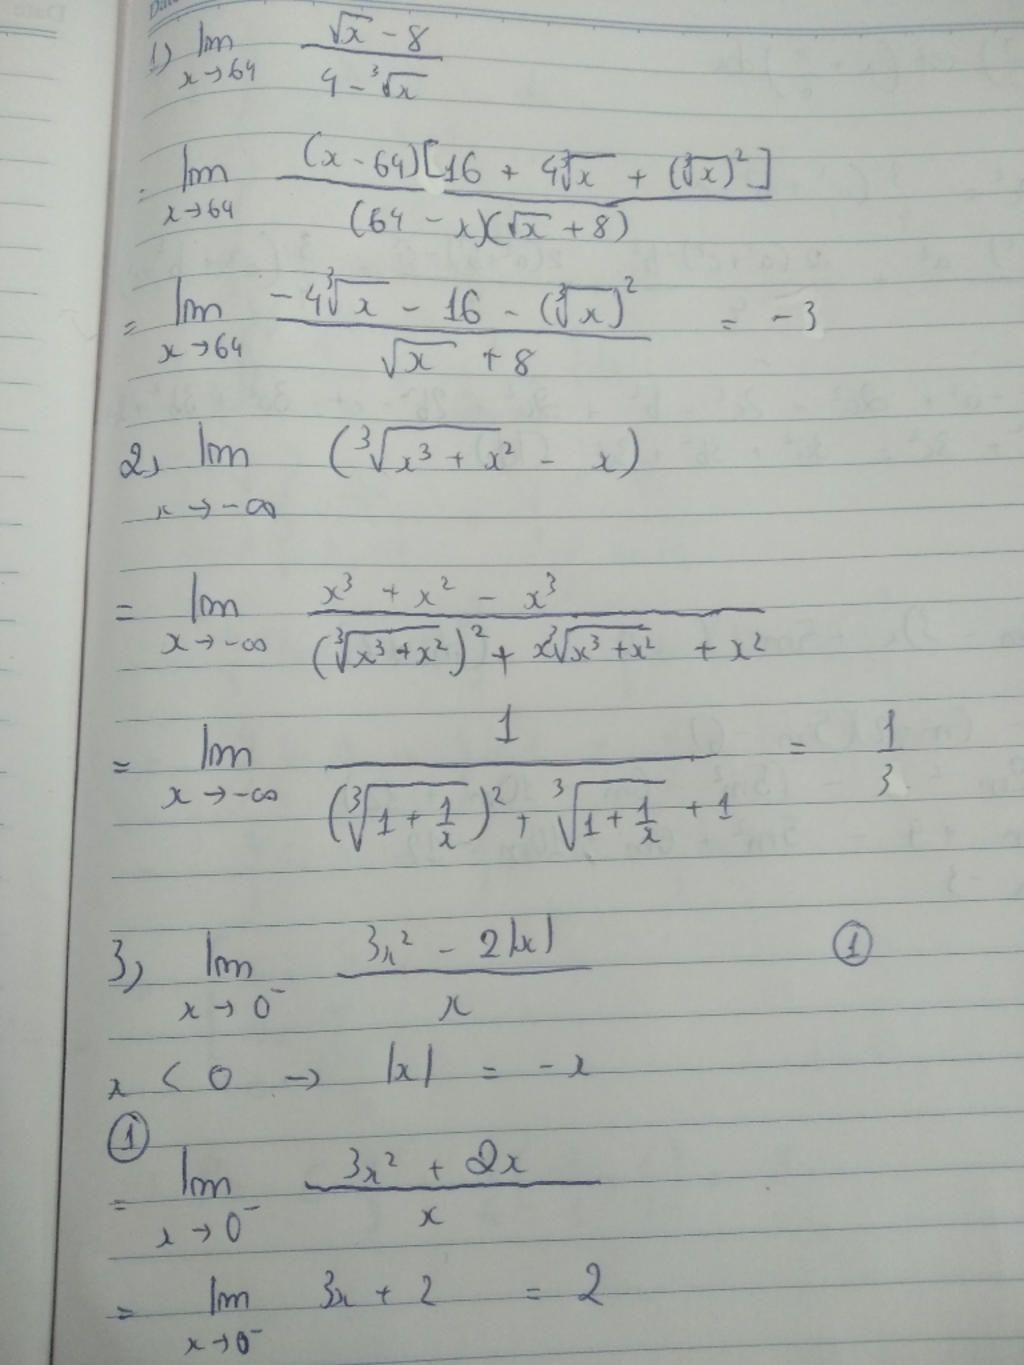 1) lim x→64 (√x - 8)/(4 - ∛x)
lim x→64 (x - 64)[16 + 4∛x + (∛x)²]/(64 - x)(√x + 8)
= lim x→64 (-4∛x - 16 - (∛x)²)/(√x + 8) = -3
2, lim x→-∞ (∛(x³ + x²) - x)
= lim x→-∞ (x³ + x² - x³)/((∛(x³+x²))² + x∛(x³+x²) + x²)
= lim x→-∞ 1/((∛(1 + 1/x))² + ∛(1 + 1/x) + 1) = 1/3
3, lim x→0⁻ (3x² - 2|x|)/x ①
x < 0 → |x| = -x
①
= lim x→0⁻ (3x² + 2x)/x
= lim x→0⁻ 3x + 2 = 2